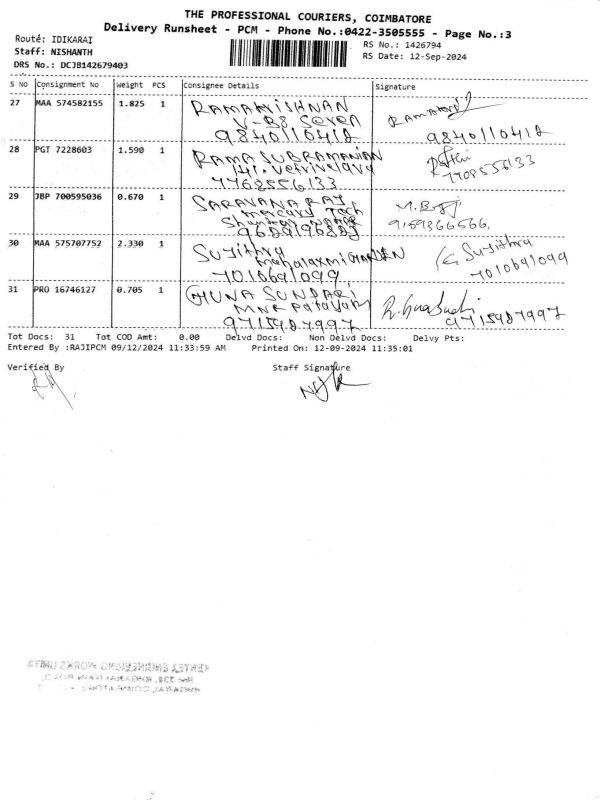 THE PROFESSIONAL COURIERS, COIMBATORE
Delivery Runsheet - PCM - Phone No.:0422-3505555 - Page No.:3
Routé: IDIKARAI
RS No.: 1426794
Staff: NISHANTH
RS Date: 12-Sep-2024
DRS No.: DCJB142679403
S No Consignment No Weight PCS Consignee Details Signature
27 MAA 574582155 1.825 1 RAMAKRISHNAN
V-B8 Seven
9840110412 9840110412
28 PGT 7228603 1.590 1 RAMA SUBRAMANIAN
141. Vetrivelava
7708556133 7708556133
29 JBP 700595036 0.670 1 SARAVANA RAJ
mercury Tech
9159366566
30 MAA 575707752 2.330 1 Sujithra Sujithra
mahalaxmi GARDEN
7010691099 7010691099
31 PRO 16746127 0.705 1 GHUNA SUNDARI
MNR
9715987997 9715987997
Tot Docs: 31 Tot COD Amt: 0.00 Delvd Docs: Non Delvd Docs: Delvy Pts:
Entered By :RAJIPCM 09/12/2024 11:33:59 AM Printed On: 12-09-2024 11:35:01
Verified By Staff Signature